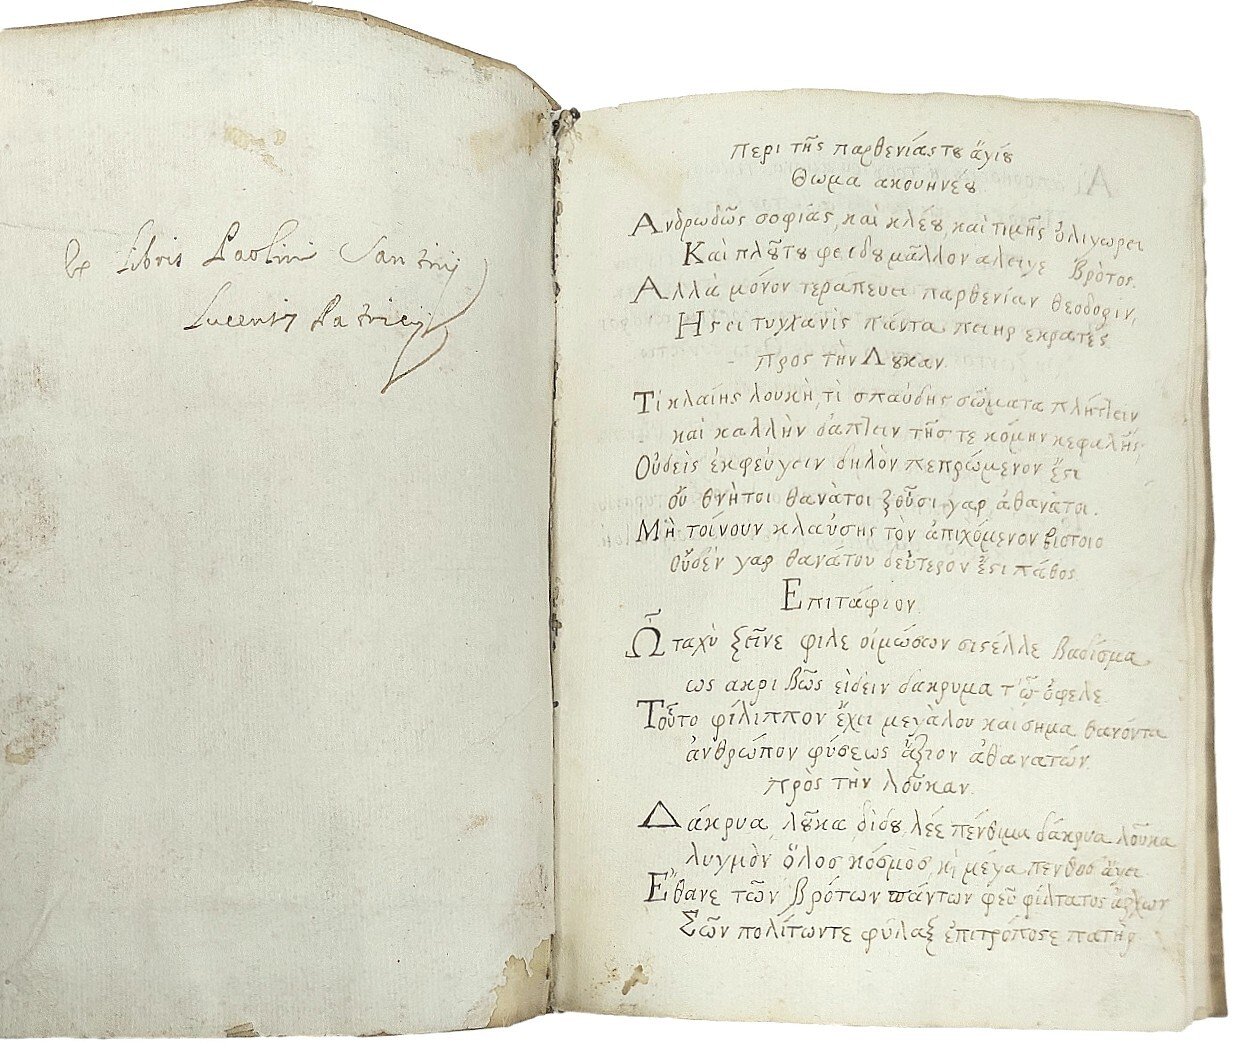 Ex libris Paolini Santinij
Lucensis Patricij
περι τῆς παρθενίας τȣ ἁγίȣ
Θωμα ακουηνέȣ
Ανδρωδῶς σοφιάς, καὶ κλέȣ, καὶ τιμῆς ὀλιγωρει
Καὶ πλȣ̃τȣ φειδȣ μᾶλλον αλειγε βρὸτος.
Αλλὰ μόνον τεράπευει παρθενίαν θεοδοφιν,
Ης ει τυγχανὶς πάντα πατηρ εκρατὲς
προς τὴν Λȣκαν.
Τί κλαίης λουκὴ, τὶ σπαύδης σώματα πλήτlειν
καὶ καλλὴν δάπlειν τῆσ τε κόμην κεφαλῆς
Οὐδεὶς ἐκφεύγειν δηλὸν πεπρώμενον ἔςι
οὐ θνήτοι θανὰτοι ζοῦσι γαρ ἀθανὰτοι.
Μὴ τοίνουν κλαύσης τὸν ἀπιχόμενον βιότοιο
Οὐδὲν γαρ θανάτου δεύτερον ἔςι πάθος
Επιτάφιον.
Ὦ ταχὺ ξεῖνε φιλε οἰμώσων σιςέλλε βαδίσμα
ως ακριβῶς εἰδειν δάκρυμα τ'ῷ ὀφελε
Τοῦτο φίλιππον ἔχει μεγὰλου καὶ σημα θανόντα
ἀνθρώπον φύσεως ἄξιον ἀθανατών.
πρὸς τὴν λοῦκαν.
Δάκρυα, λȣκα δίδȣ, λέε πένθιμα δάκρυα λοῦκα
λυγμὸν ὅλος κόσμὸς, κὶ μέγα πενθοσ ἄγει
Εθανε τῶν βρότων πάντων φεῦ φίλτατος ἄρχων
Σῶν πολίτωντε φύλαξ ἐπιτρόποσε πατὴρ